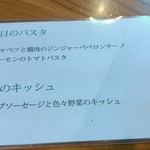 日のパスタ
ャベツと鶏肉のジンジャーペペロンチーノ
ーモンのトマトパスタ
のキッシュ
ブソーセージと色々野菜のキッシュ